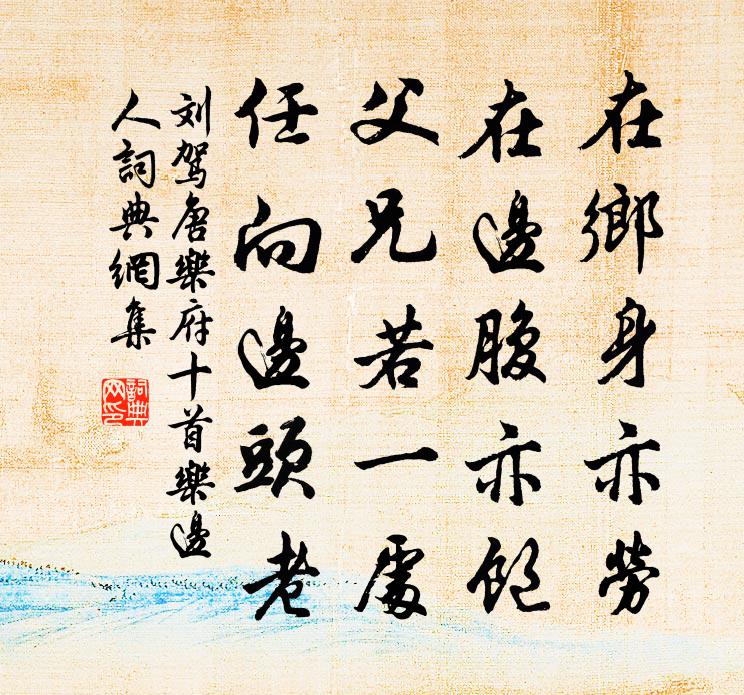 在鄉身亦勞
在邊腹亦飽
父兄若一處
任向邊頭老
刘駕唐樂府十首樂邊
人詞典網集
詞典
网印